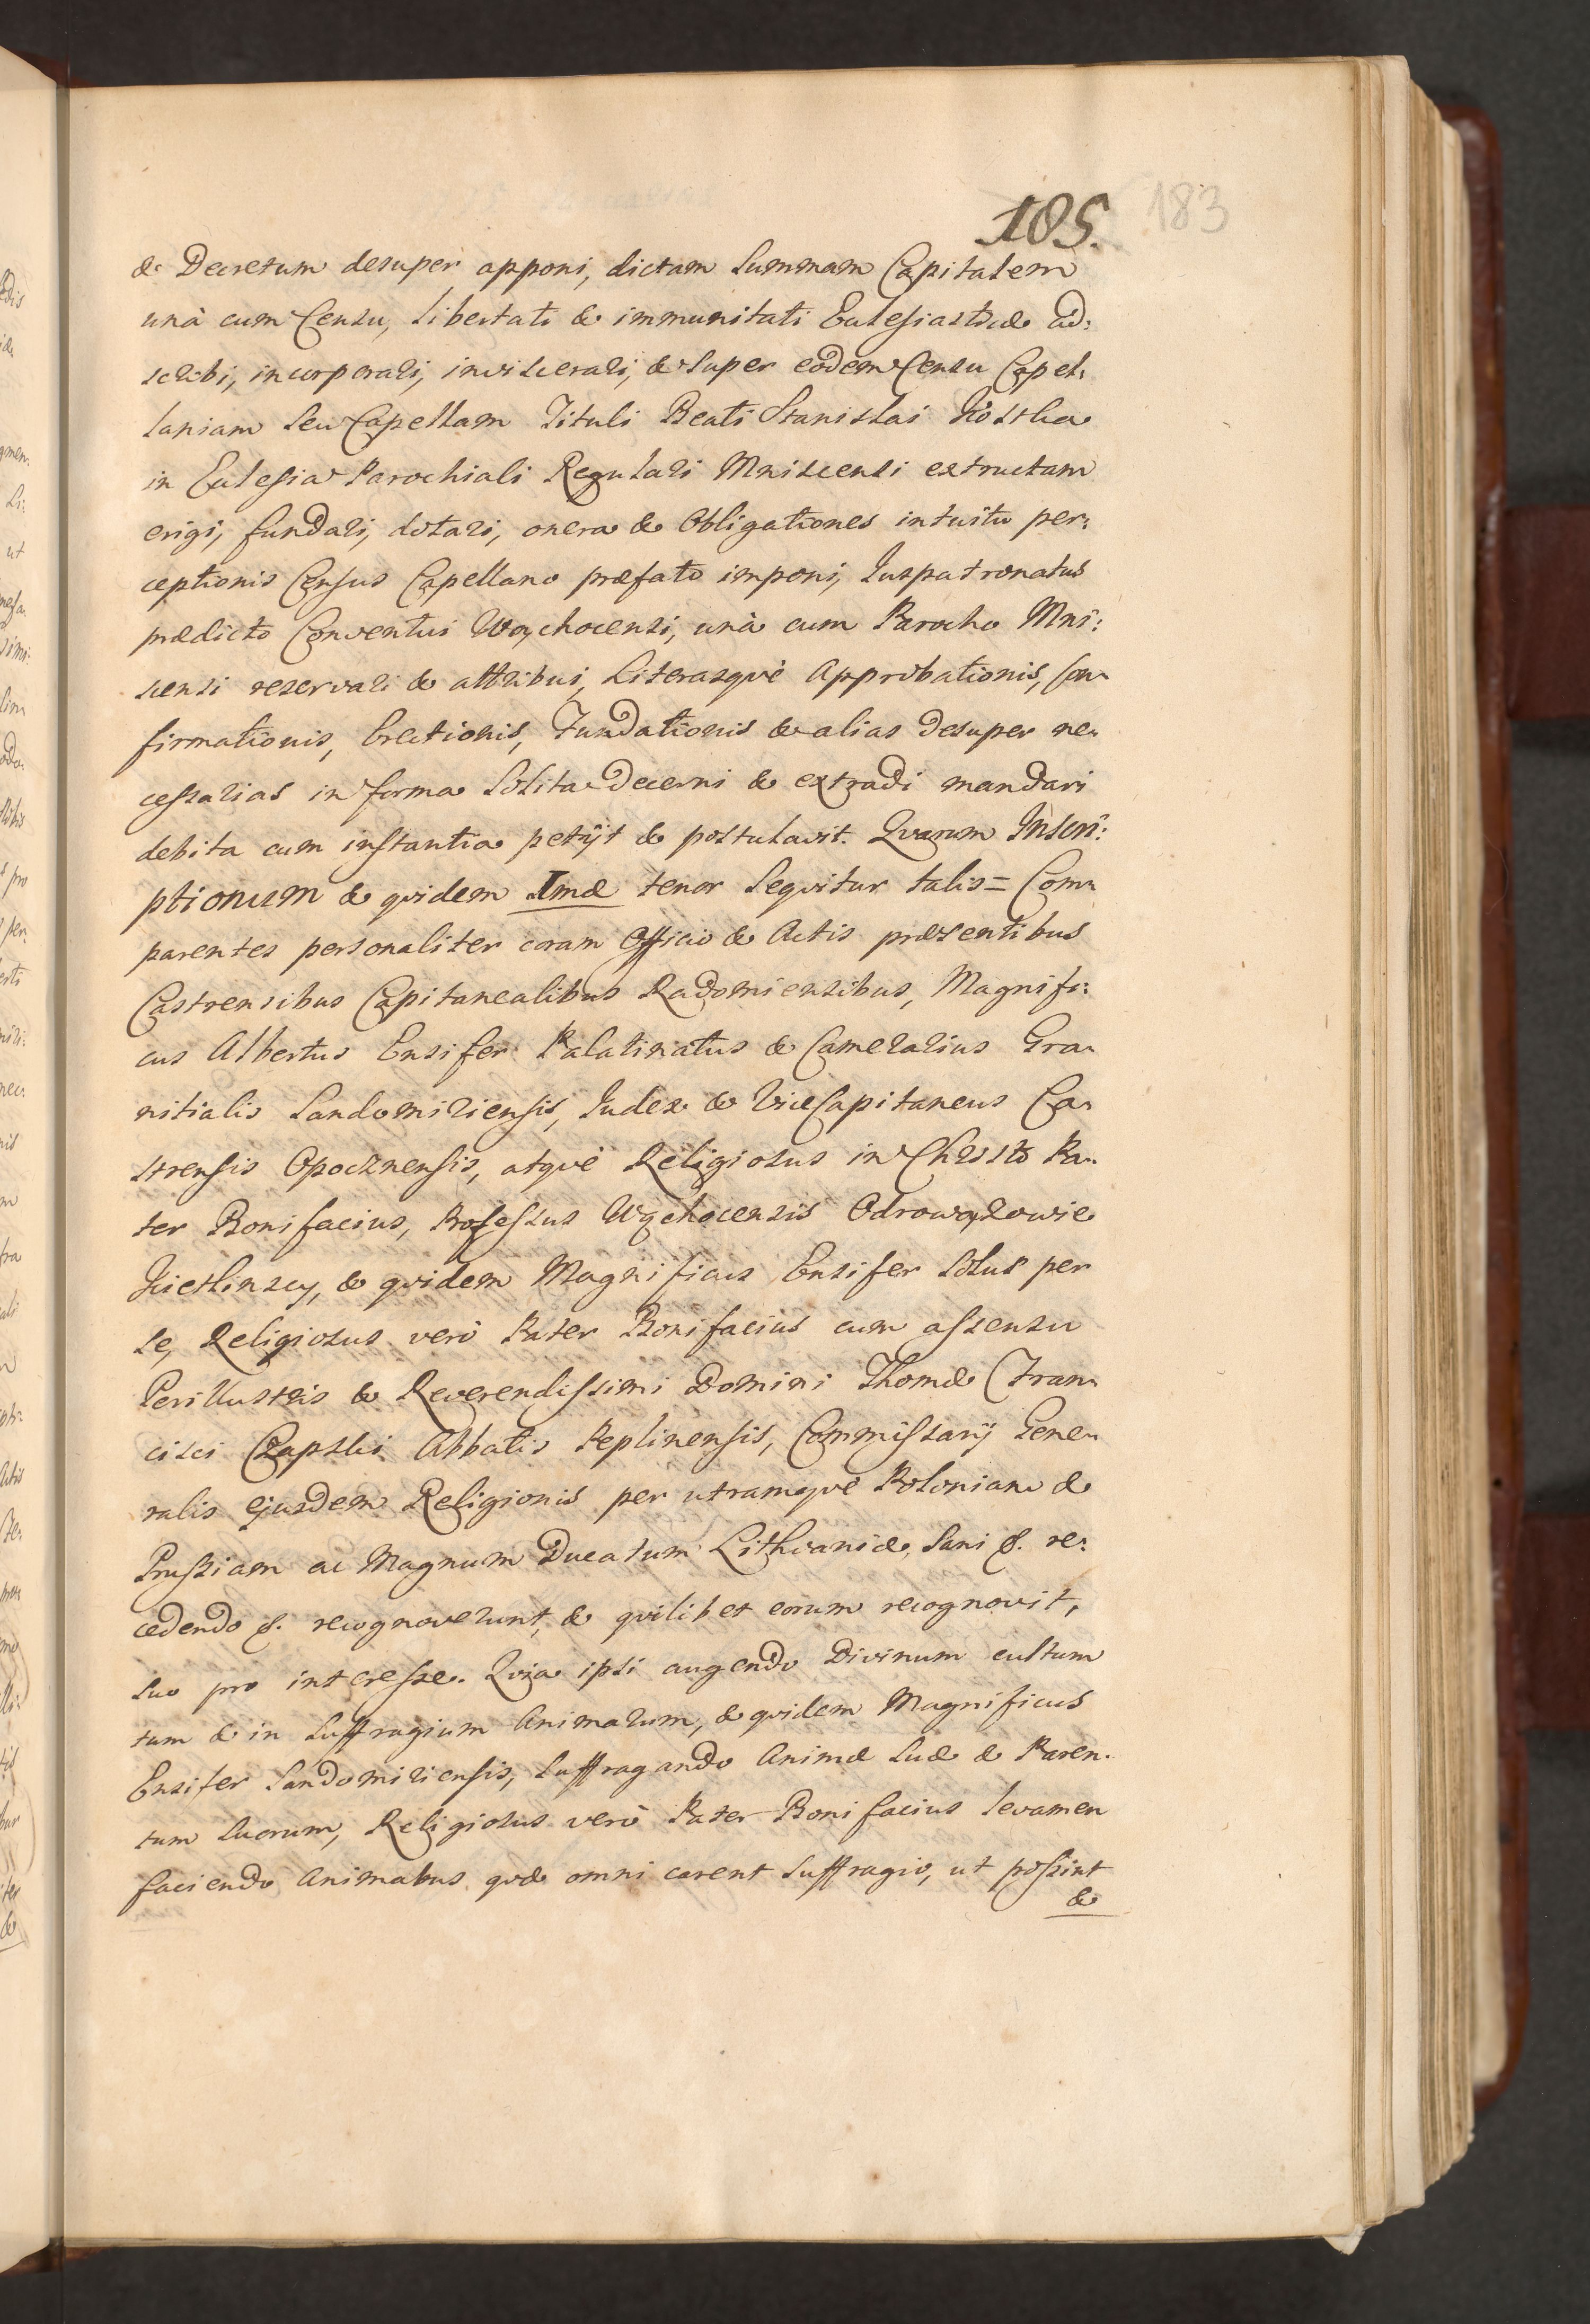 185. 183
& Decretum desuper apponi, dictam Summam Capitalem
unà cum Censu, libertati & immunitati Eclesiasticæ ad:
scribi, incorporari, inviscerari, & super eodem Censu Capel:
laniam seu Capellam Tituli Beati Stanislai Kostka
in Eclesia Parochiali Regulari Mniscensi extructam
erigi, fundari, dotari, onera & Obligationes intuitu per:
ceptionis Census Capellano præfato imponi, Iuspatronatus
prædicto Conventui Wąchocensi, unà cum Parocho Mni:
scensi reservari & attribui, Literasquè Approbationis, Con:
firmationis, Erectionis, Fundationis & alias desuper ne:
cessarias in forma solita Decerni & extradi mandari
debita cum instantia petijt & postulavit. Qvarum Inscri:
ptionum & qvidem Imæ tenor seqvitur talis = Com:
parentes personaliter coram Officio & Actis præsentibus
Castrensibus Capitanealibus Radomiensibus, Magnifi:
cus Albertus Ensifer Palatinatus & Camerarius Gra:
nitialis Sandomiriensis, Iudex & ViceCapitaneus Ca:
strensis Opocznensis, atqvè Religiosus in Christo Pa:
ter Bonifacius, Professus Wąchocensis Odrowążowie
Kietlinscy, & qvidem Magnificus Ensifer solus per
se, Religiosus verò Pater Bonifacius cum assensu
Perillustris & Reverendissimi Domini Thomæ Fran:
cisci Czapski Abbatis Peplinensis, Commissarij Gene:
ralis ejusdem Religionis per utramqvè Poloniam &
Prussiam ac Magnum Ducatum Lithvaniæ, Sani &. re:
cedendo &. recognoverunt, & qvilibet eorum recognovit,
suo pro interesse. Qvia ipsi augendo Divinum cultum
tum & in Suffragium Animarum, & qvidem Magnificus
Ensifer Sandomiriensis, suffragando Animæ suæ & Paren:
tum suorum, Religiosus verò Pater Bonifacius levamen
faciendo Animabus qvæ omni carent suffragio, ut possint
&